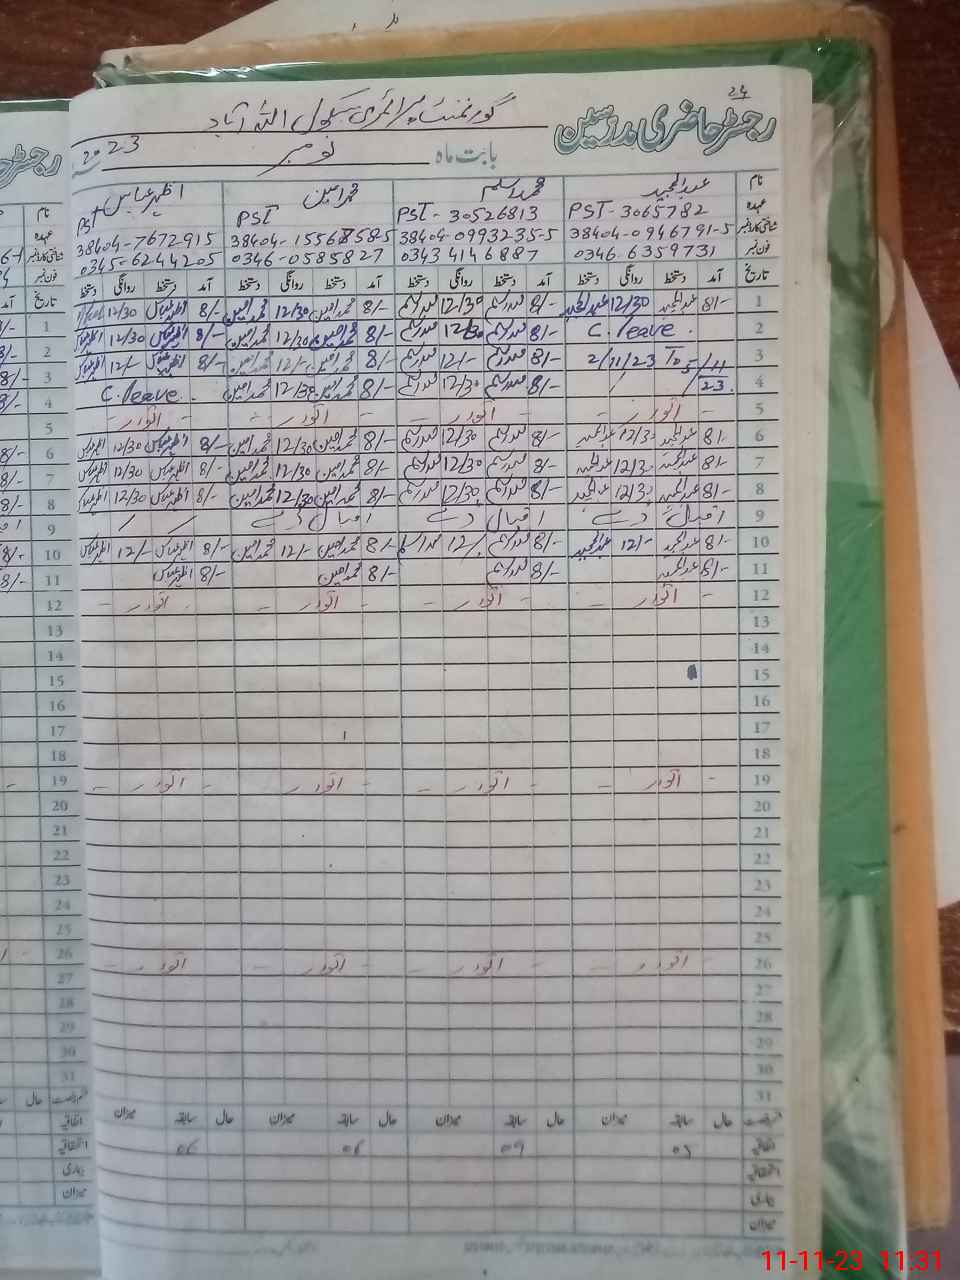 24
رجسٹر حاضری مدرسین گورنمنٹ پرائمری سکول اللہ آباد
بابت ماہ نومبر 2023
نام عبدالمجید محمد اسلم محمد امین اظہر عباس
عہدہ PST - 3065782 PST - 30526813 PST PST
شناختی کارڈ نمبر 38404-0946791-5 38404-0993235-5 38404-1556858-5 38404-7672915
فون نمبر 0346 6359731 0343 4146887 0346-0585827 0345-6244205
تاریخ آمد دستخط روانگی دستخط آمد دستخط روانگی دستخط آمد دستخط روانگی دستخط آمد دستخط روانگی دستخط
1 8/- عبدالمجید 12/30 عبدالمجید 8/- محمد اسلم 12/30 محمد اسلم 8/- محمد امین 12/30 محمد امین 8/- اظہر عباس 12/30
2 C. leave. 8/- محمد اسلم 12/30 محمد اسلم 8/- محمد امین 12/30 محمد امین 8/- اظہر عباس 12/30 اظہر عباس
3 2/11/23 To 5/11 8/- محمد اسلم 12/- محمد اسلم 8/- محمد امین 12/- محمد امین 8/- اظہر عباس 12/- اظہر عباس
4 / / 23. 8/- محمد اسلم 12/30 محمد اسلم 8/- محمد امین 12/30 محمد امین C. leave.
5 - اتوار - - اتوار - - اتوار - - اتوار -
6 8/- عبدالمجید 12/30 عبدالمجید 8/- محمد اسلم 12/30 محمد اسلم 8/- محمد امین 12/30 محمد امین 8/- اظہر عباس 12/30 اظہر عباس
7 8/- عبدالمجید 12/30 عبدالمجید 8/- محمد اسلم 12/30 محمد اسلم 8/- محمد امین 12/30 محمد امین 8/- اظہر عباس 12/30 اظہر عباس
8 8/- عبدالمجید 12/30 عبدالمجید 8/- محمد اسلم 12/30 محمد اسلم 8/- محمد امین 12/30 محمد امین 8/- اظہر عباس 12/30 اظہر عباس
9 اقبال ڈے اقبال ڈے اقبال ڈے / /
10 8/- عبدالمجید 12/- عبدالمجید 8/- محمد اسلم 12/- محمد اسلم 8/- محمد امین 12/- محمد امین 8/- اظہر عباس 12/- اظہر عباس
11 8/- عبدالمجید 8/- محمد اسلم 8/- محمد امین 8/- اظہر عباس
12 - اتوار - - اتوار - - اتوار - - اتوار -
13
14
15
16
17
18
19 - اتوار - - اتوار - - اتوار - - اتوار -
20
21
22
23
24
25
26 - اتوار - - اتوار - - اتوار - - اتوار -
27
28
29
30
31
قسم رخصت حال سابقہ میزان حال سابقہ میزان حال سابقہ میزان حال سابقہ میزان
اتفاقیہ 09 06 06
استحقاقیہ
بیماری
میزان
11-11-23 11:31